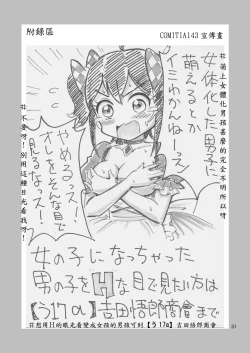 附錄區
COMITIA143 宣傳畫
女体化した男子に
萌えるとか
イミわかんねーっス
#萌上女體化男孩甚麼的完全不明所以呀
やめるっス!
オレをそんな目で
見るなっス!
#不要呀!別用這種目光看我呀!
女の子になっちゃった
男の子をHな目で見たい方は
【う17α】吉田悟郎商會まで
#想用H的眼光看變成女孩的男孩可到【う17α】吉田悟郎商會